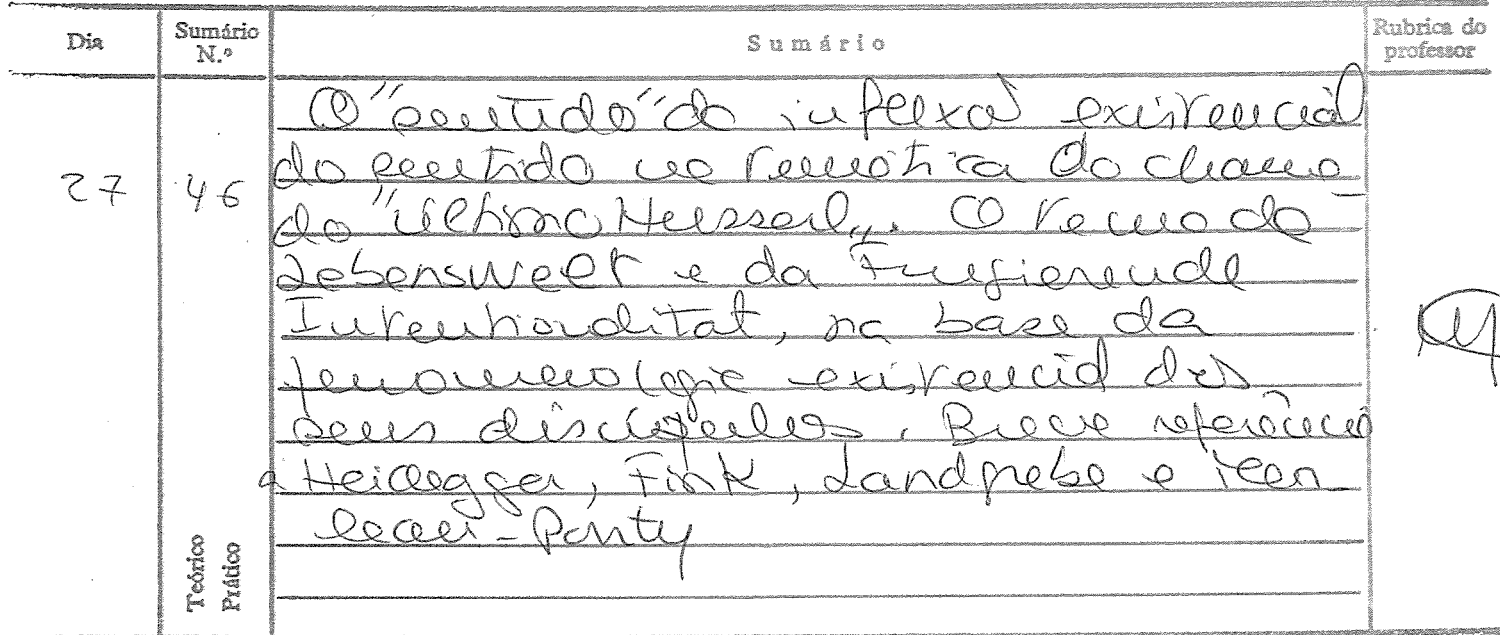 Dia
Sumário N.º
Sumário
Rubrica do professor
27
46
O "sentido" da inflexão existencial
do sentido na temática do chama-
do "último Husserl". O tema da
Lebenswelt e da Fungierende
Intentionalitat, na base da
fenomenologia existencial dos
seus discípulos. Breve referência
a Heidegger, Fink, Landgrebe e Mer
leau-Ponty
Teórico
Prático